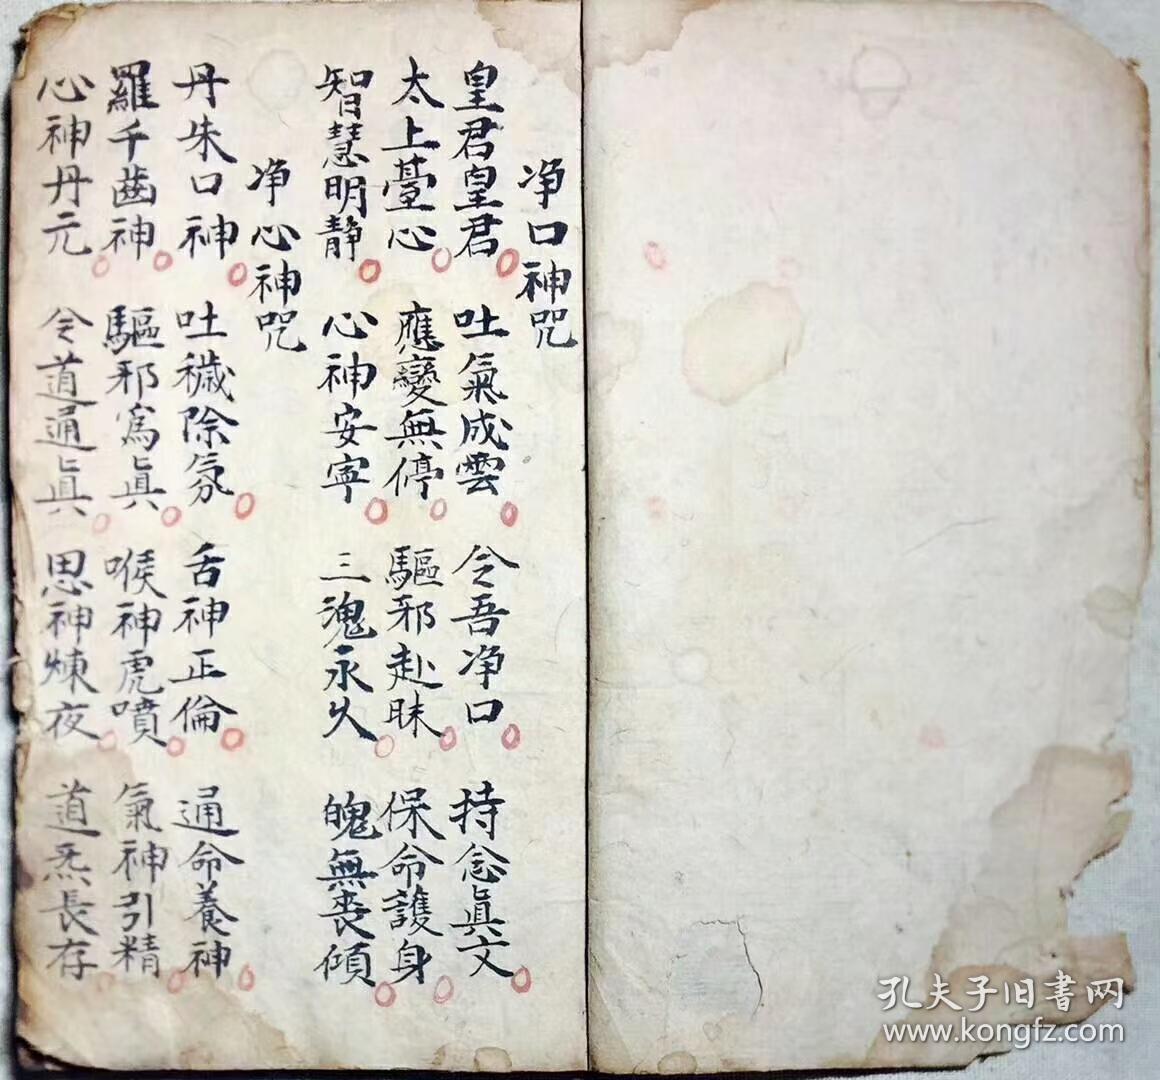 净口神咒
皇君皇君 吐氣成雲 令吾净口 持念眞文
太上臺心 應變無停 驅邪赴昧 保命護身
智慧明静 心神安寧 三魂永久 魄無喪傾
净心神咒
丹朱口神 吐穢除氛 舌神正倫 通命養神
羅千齒神 驅邪為眞 喉神虎噴 氣神引精
心神丹元 令道通眞 思神煉夜 道炁長存
孔夫子旧书网
www.kongfz.com